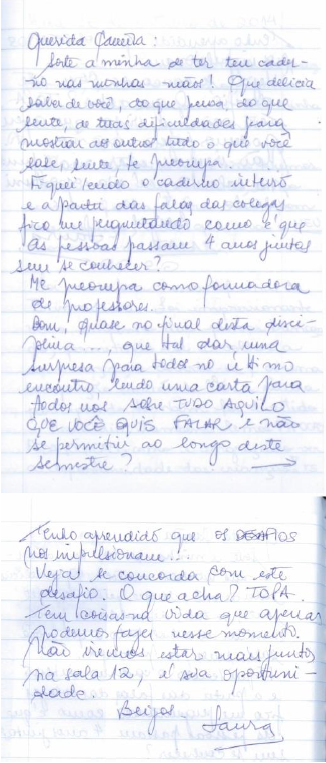 Querida Camila:
Sorte a minha de ter teu cader-
no nas minhas mãos! Que delícia
saber de você, do que pensa, do que
sente, de tuas dificuldades para
mostrar aos outros tudo o que você
sabe, sente, te preocupa.
Fiquei lendo o caderno inteiro
e a partir das falas das colegas
fico me perguntando como é que
as pessoas passam 4 anos juntas
sem se conhecer?
Me preocupa como formadora
de professores...
Bom, quase no final desta disci-
plina..., que tal dar, uma
surpresa para todos no último
encontro, lendo uma carta para
todos nós sobre TUDO AQUILO
QUE VOCÊ QUIS FALAR e não
se permitiu ao longo deste
semestre?
Tenho aprendido que os DESAFIOS
nos impulsionam...
Veja se concorda com este
desafio. O que acha? TOPA.
Tem coisas na vida que apenas
podemos fazer nesse momento.
Não iremos estar mais juntos
na sala 12, é sua oportuni-
dade.
Beijos
Laura